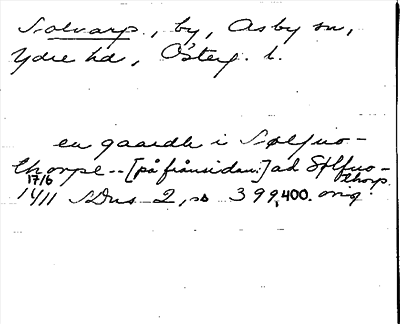 Solvarp, by, Asby sn,
Ydre hd, Österg. l.
en gaardh i Sølfuo-
thorpe -- [på frånsidan:] ad Sølfuo-
thorp
17/6
1411 SDns 2, s 399,400. orig.